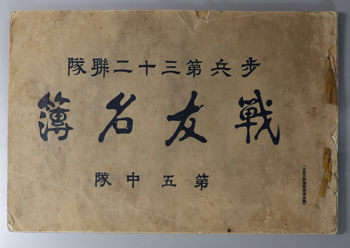 歩兵第三十二聯隊
戦友名簿
第五中隊